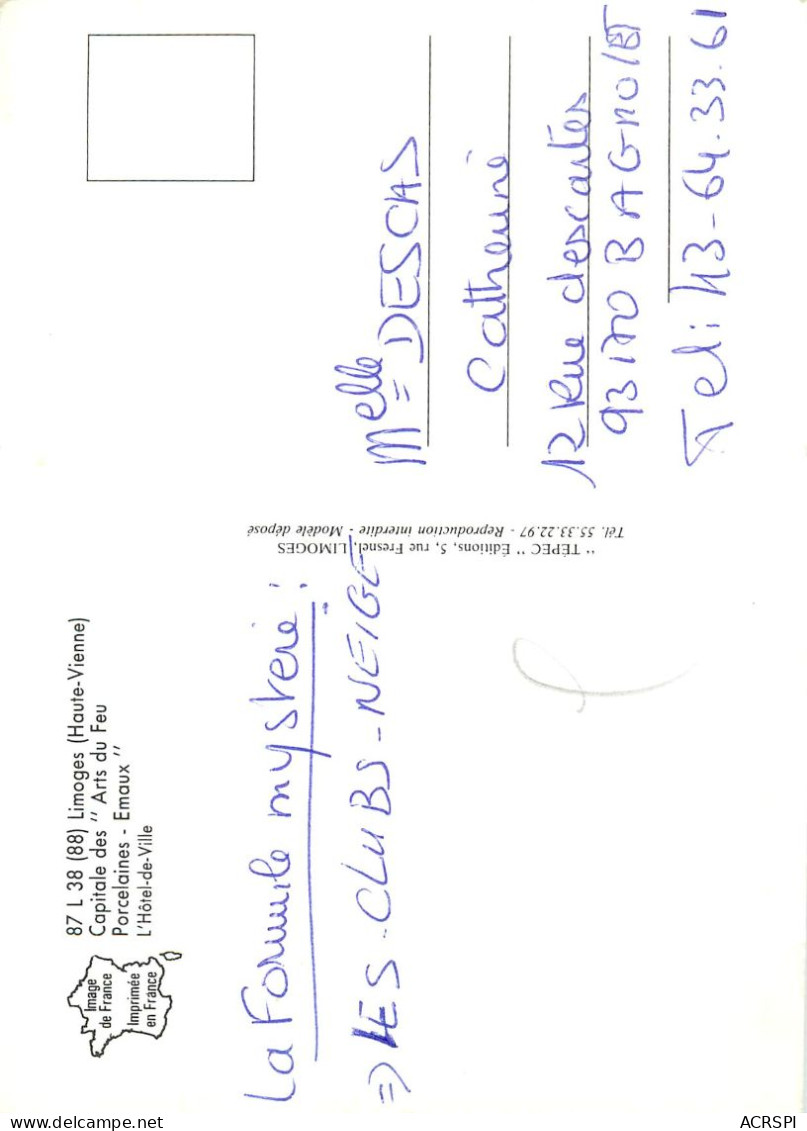 87 L 38 (88) Limoges (Haute-Vienne)
Capitale des " Arts du Feu
Porcelaines - Emaux "
L'Hôtel-de-Ville
Image
de France
Imprimée
en France
La Formule mystérie :
=> LES - CLUBS - NEIGE
" TÉPEC " Éditions, 5, rue Fresnel, LIMOGES
Tél. 55.33.22.97 - Reproduction interdite - Modèle déposé
Melle DESCAS
Catherine
12 Rue descartes
93170 BAGNOLET
Tel: 43-64.33.61
ACRSPI